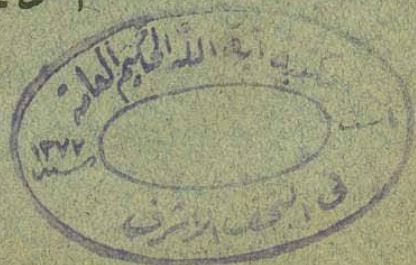 مكتبة آية الله الحكيم العامة
سنة ١٣٧٧
في النجف الأشرف